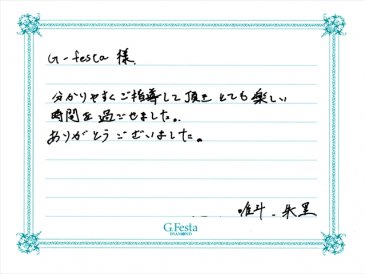 G-festa 様
分かりやすくご指導して頂き とても楽しい
時間を過ごせました。
ありがとうございました。
唯斗・朱里
G.Festa
DIAMOND